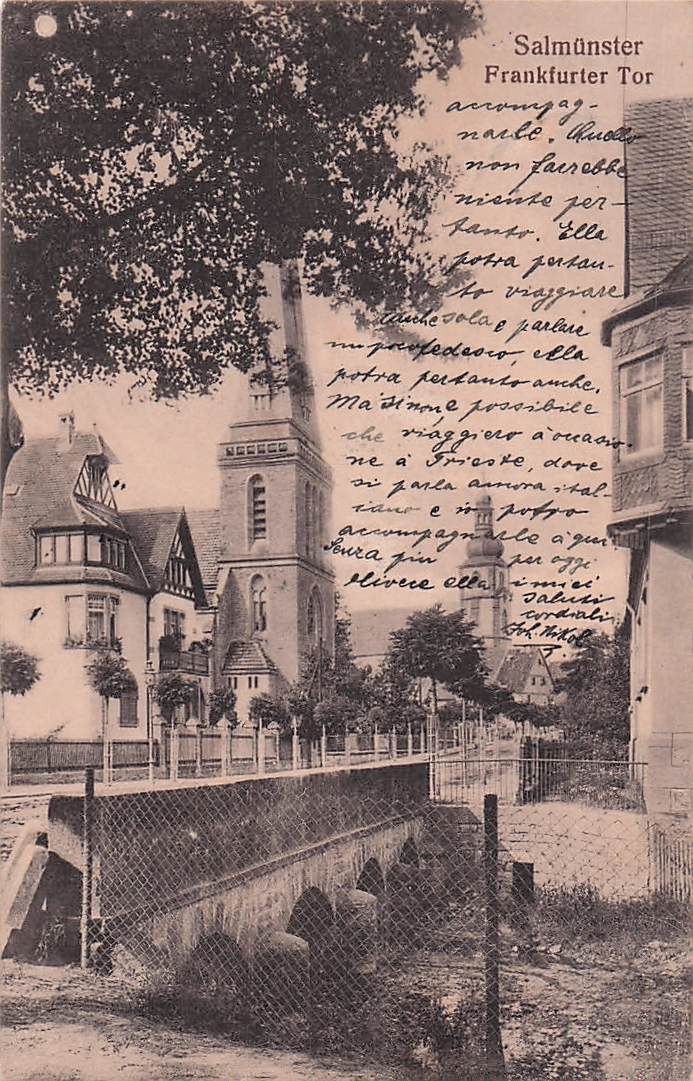 Salmünster
Frankfurter Tor
accompag-
narla. Quello
non farebbe
niente per-
tanto. Ella
potra pertan-
to viaggiare
anche sola e parlare
un poco tedesco, ella
potra pertanto anche.
Ma sinon, e possibile
che viaggiero à occasio-
ne à Trieste, dove
si parla ancora ital-
iano e io posso
accompagnarla à qui
Senza piu per oggi
riivere ella i miei
saluti
cordiali
Joh. Nikol